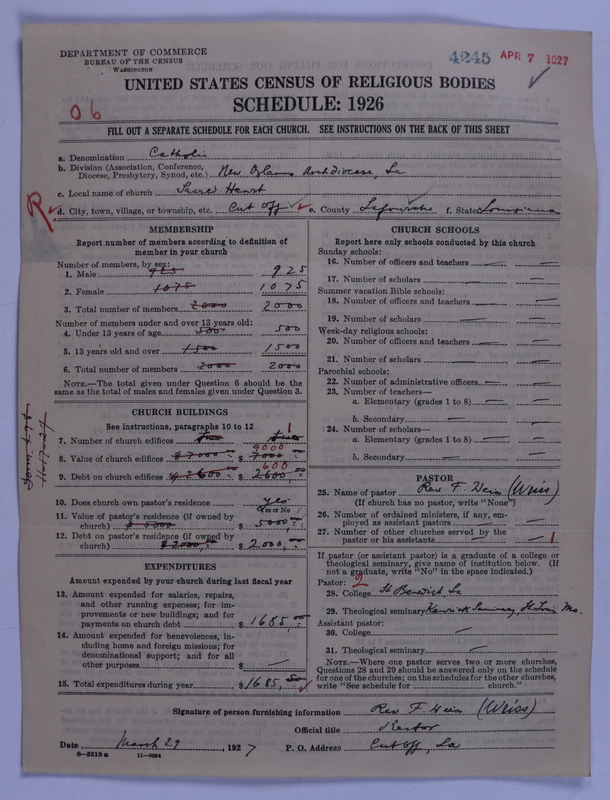 DEPARTMENT OF COMMERCE
BUREAU OF THE CENSUS
WASHINGTON
4245 APR 7 1927
UNITED STATES CENSUS OF RELIGIOUS BODIES
SCHEDULE: 1926
06
FILL OUT A SEPARATE SCHEDULE FOR EACH CHURCH. SEE INSTRUCTIONS ON THE BACK OF THIS SHEET
a. Denomination Catholic
b. Division (Association, Conference, Diocese, Presbytery, Synod, etc.) New Orleans Archdiocese, La
c. Local name of church Sacred Heart
R d. City, town, village, or township, etc. Cut Off e. County Lafourche f. State Louisiana
MEMBERSHIP
Report number of members according to definition of
member in your church
Number of members, by sex:
1. Male 925 925
2. Female 1075 1075
3. Total number of members 2000 2000
Number of members under and over 13 years old:
4. Under 13 years of age 500 500
5. 13 years old and over 1500 1500
6. Total number of members 2000 2000
NOTE.—The total given under Question 6 should be
the same as the total of males and females given under Question 3.
CHURCH BUILDINGS
See instructions, paragraphs 10 to 12
1
7. Number of church edifices
9000
8. Value of church edifices $7000 $7000
600
9. Debt on church edifices $2600 $2600
10. Does church own pastor's residence yes
Yes or No
11. Value of pastor's residence (if owned by
church) $5000 $5000
12. Debt on pastor's residence (if owned by
church) $2000 $2000
EXPENDITURES
Amount expended by your church during last fiscal year
13. Amount expended for salaries, repairs,
and other running expenses; for im-
provements or new buildings; and for
payments on church debt $1685
14. Amount expended for benevolences, in-
cluding home and foreign missions; for
denominational support; and for all
other purposes $ —
15. Total expenditures during year $1685
CHURCH SCHOOLS
Report here only schools conducted by this church
Sunday schools:
16. Number of officers and teachers — —
17. Number of scholars — —
Summer vacation Bible schools:
18. Number of officers and teachers — —
19. Number of scholars — —
Week-day religious schools:
20. Number of officers and teachers — —
21. Number of scholars — —
Parochial schools:
22. Number of administrative officers — —
23. Number of teachers—
a. Elementary (grades 1 to 8) — —
b. Secondary — —
24. Number of scholars—
a. Elementary (grades 1 to 8) — —
b. Secondary — —
PASTOR
25. Name of pastor Rev F. Weis (Weiss)
(If church has no pastor, write "None")
26. Number of ordained ministers, if any, em-
ployed as assistant pastors — —
27. Number of other churches served by the
pastor or his assistants — 1
If pastor (or assistant pastor) is a graduate of a college or
theological seminary, give name of institution below. (If
not a graduate, write "No" in the space indicated.)
Pastor:
28. College St Benedict, La
29. Theological seminary Kenrick Seminary, St Louis Mo.
Assistant pastor:
30. College —
31. Theological seminary —
NOTE.—Where one pastor serves two or more churches,
Questions 28 and 29 should be answered only on the schedule
for one of the churches; on the schedules for the other churches,
write "See schedule for church."
Signature of person furnishing information Rev F. Weis (Weiss)
Official title Rector
Date March 29, 1927 P. O. Address Cut Off, La
8—5518a 11—9054